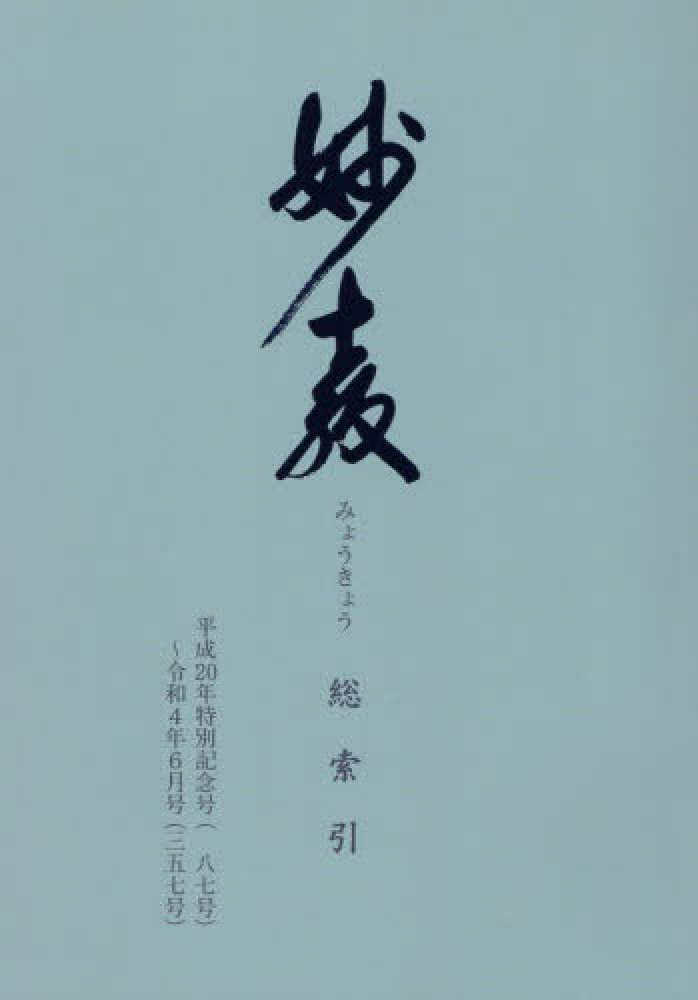 妙教
みょうきょう
総索引
平成20年特別記念号(　八七号)
～令和4年6月号(二五七号)